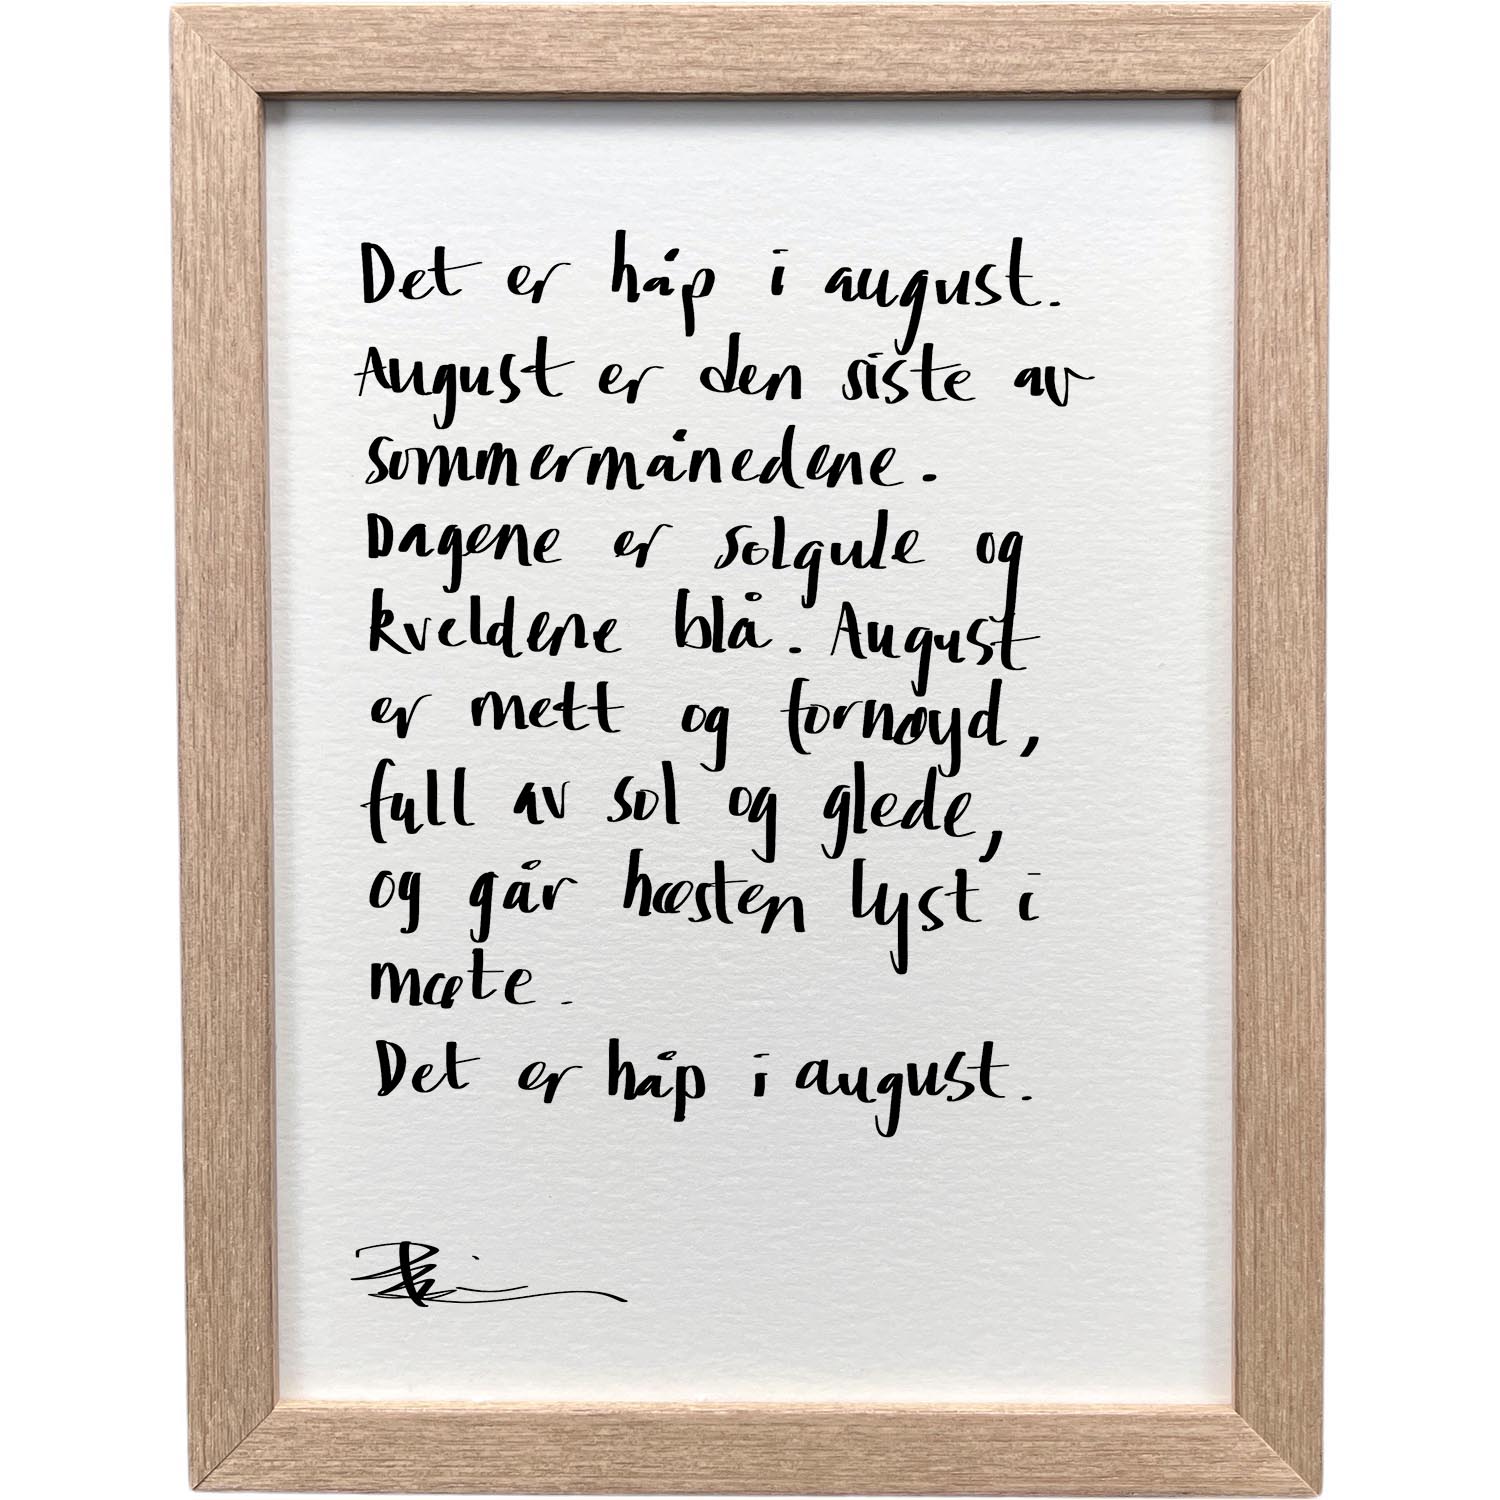 Det er håp i august.
August er den siste av
sommermånedene.
Dagene er solgule og
kveldene blå. August
er mett og fornøyd,
full av sol og glede,
og går høsten lyst i
møte.
Det er håp i august.